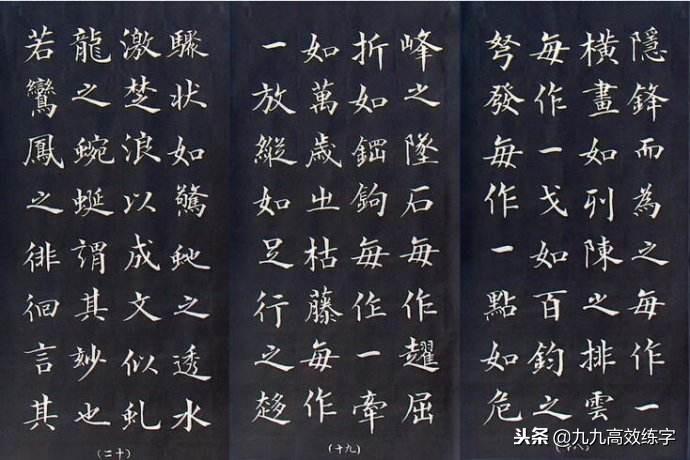 隱鋒而為之每作一
橫畫如列陳之排雲
每作一戈如百鈞之
弩發每作一點如危
(十八)
峰之墜石每作趯屈
折如鋼鉤每作一牽
如萬歲㞢枯藤每作
一放縱如足行之趍
(十九)
驟状如驚虵之透水
激楚浪以成文似虬
龍之蜿蜒謂其妙也
若鸞鳳之徘徊言其
(二十)
头条 @九九高效练字